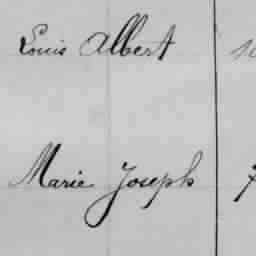 Louis Albert
Marie Joseph 7